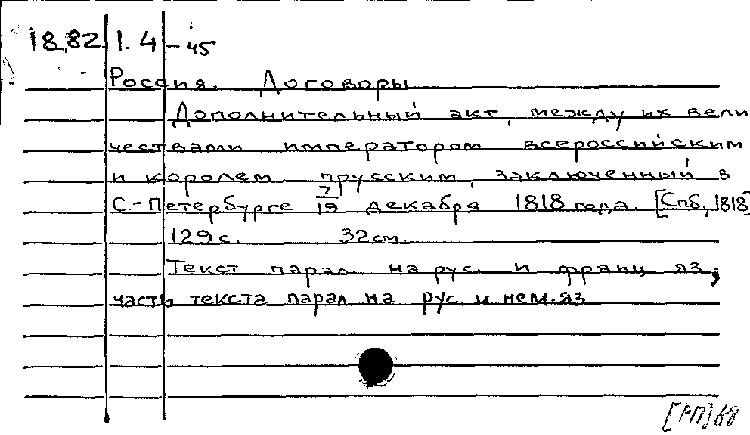 18.82 1.4 - 45
Россия. Договоры
Дополнительный акт, между их вели
чествами императором всероссийским
и королем прусским, заключенный в
С.-Петербурге 7/19 декабря 1818 года. [Спб, 1818]
129 с. 32 см.
Текст парал на рус. и франц яз,
часть текста парал на рус и нем. яз
[РП] 68